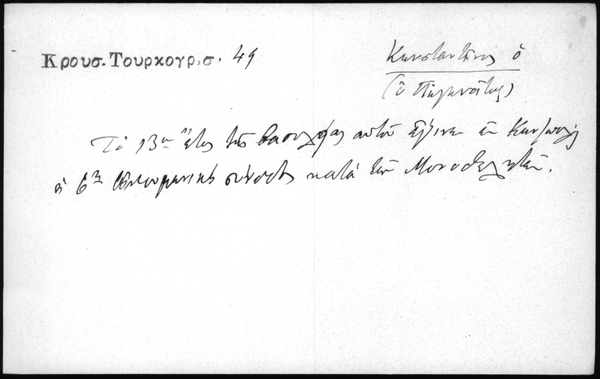 Κρουσ. Τουρκογρ. σ. 49
Κωνσταντῖνος ὁ
(ὁ Πωγωνᾶτος)
Τὸ 13ον ἔτος τῆς βασιλείας αὐτοῦ ἔγινεν ἐν Κων/πόλει
ἡ 6η οἰκουμενικὴ σύνοδος κατὰ τῶν Μονοθελητῶν.